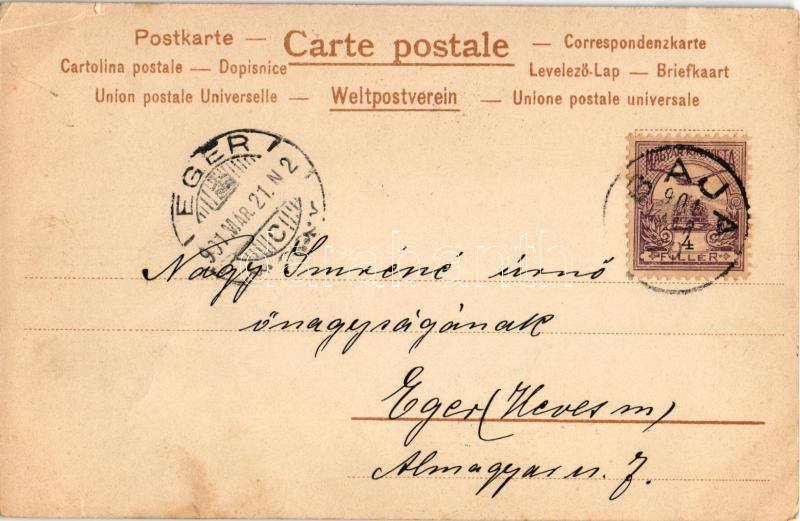 Postkarte — Carte postale — Correspondenzkarte
Cartolina postale — Dopisnice Levelező-Lap — Briefkaart
Union postale Universelle — Weltpostverein — Unione postale universale
EGER
901 MAR. 21. N 2
C
MAGYAR KIR. POSTA
BAJA
901
4
FILLÉR
darabanth
Nagy Imréné úrnő
őnagyságának
Eger (Heves m)
Almagyar u. 7.